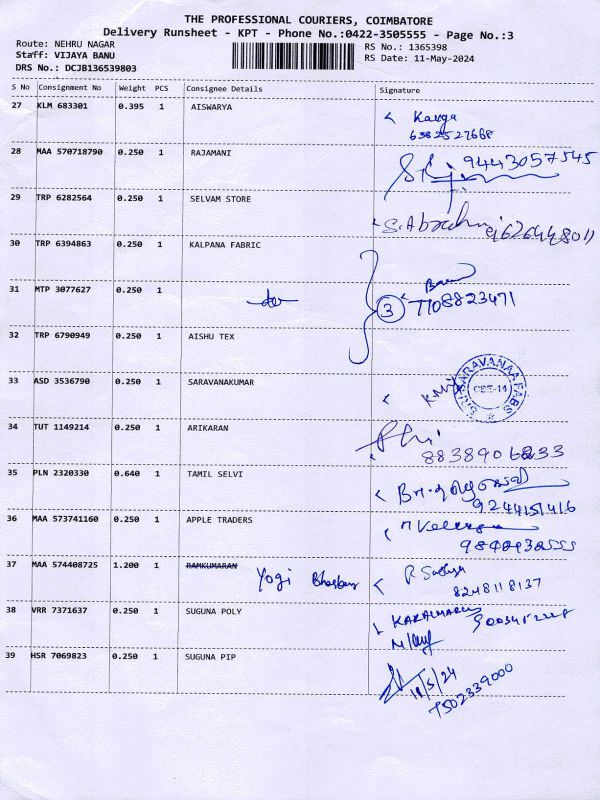 THE PROFESSIONAL COURIERS, COIMBATORE
Delivery Runsheet - KPT - Phone No.:0422-3505555 - Page No.:3
Route: NEHRU NAGAR
RS No.: 1365398
Staff: VIJAYA BANU
RS Date: 11-May-2024
DRS No.: DCJB136539803
S No Consignment No Weight PCS Consignee Details Signature
27 KLM 683301 0.395 1 AISWARYA
28 MAA 570718790 0.250 1 RAJAMANI 9443057545
29 TRP 6282564 0.250 1 SELVAM STORE
30 TRP 6394863 0.250 1 KALPANA FABRIC
31 MTP 3077627 0.250 1 3 7708823471
32 TRP 6790949 0.250 1 AISHU TEX
33 ASD 3536790 0.250 1 SARAVANAKUMAR
SRI SARAVANAA FABS CBE-14
34 TUT 1149214 0.250 1 ARIKARAN
35 PLN 2320330 0.640 1 TAMIL SELVI
9244151416
36 MAA 573741160 0.250 1 APPLE TRADERS
37 MAA 574408725 1.200 1 RAMKUMARAN Yogi
8248118137
38 VRR 7371637 0.250 1 SUGUNA POLY
39 HSR 7069823 0.250 1 SUGUNA PIP
11/5/24
7502339000